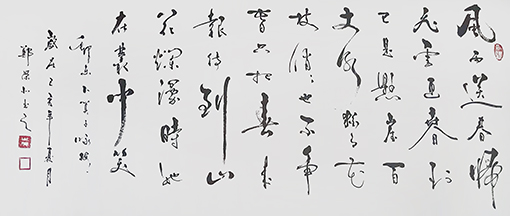 風雨送春歸
飛雪迎春到
已是懸崖百
丈冰猶有花
枝俏々也不爭
春只把春來
報待到山
花爛漫時她
在叢中笑
卜算子咏梅
歲在己亥年夏月
鄭